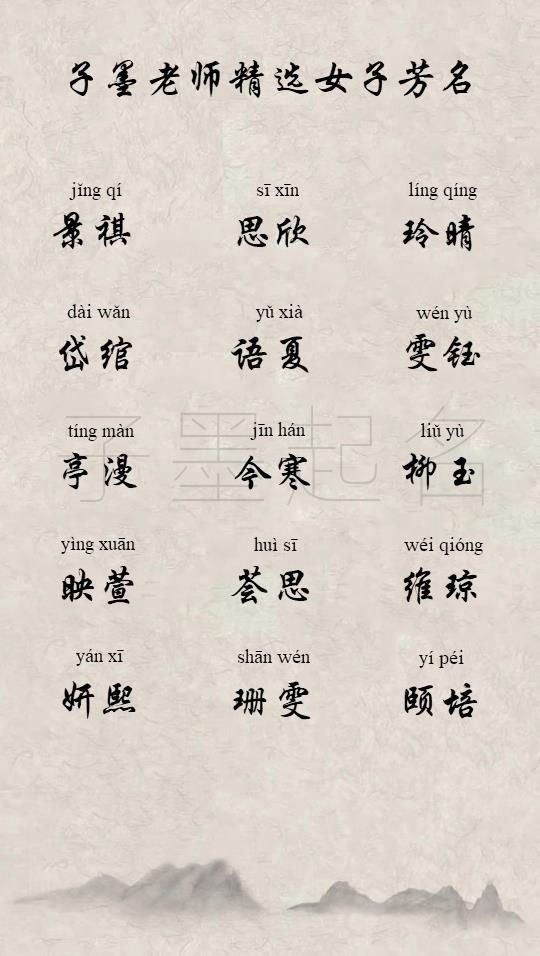 子墨老师精选女子芳名
jǐng qí sī xīn líng qíng
景祺 思欣 玲晴
dài wǎn yǔ xià wén yù
岱绾 语夏 雯钰
子墨起名
tíng màn jīn hán liǔ yù
亭漫 今寒 柳玉
yìng xuān huì sī wéi qióng
映萱 荟思 维琼
yán xī shān wén yí péi
妍熙 珊雯 颐培